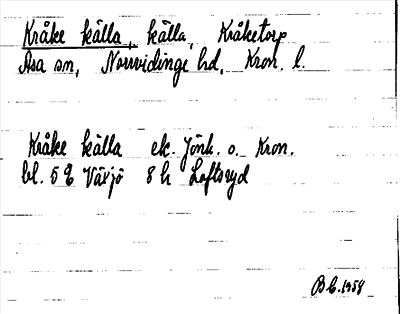 Kråke källa, källa, Kråketorp
Asa sn, Norrvidinge hd, Kron. l.
Kråke källa ek. Jönk. o. Kron.
bl. 5 E Växjö 8 h Loftsryd
1958